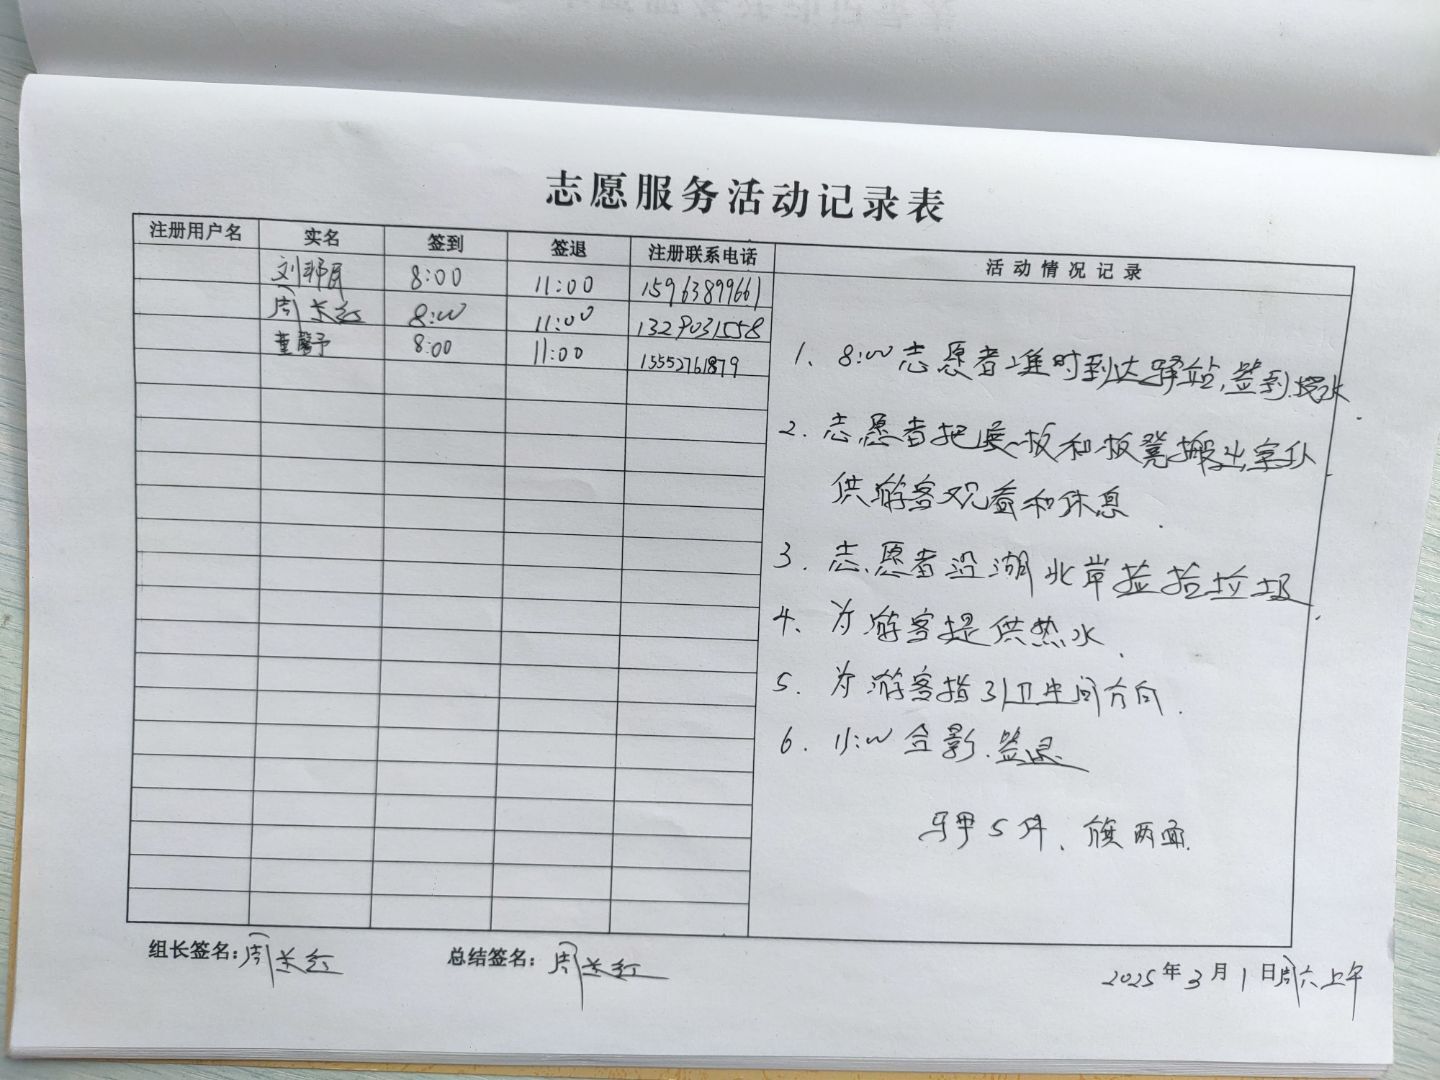 志愿服务活动记录表
注册用户名 实名 签到 签退 注册联系电话 活动情况记录
刘邦民 8:00 11:00 15963899661
周长红 8:00 11:00 1329031558
董馨予 8:00 11:00 15552761879
1、8:00志愿者准时到达驿站,签到.烧水.
2.志愿者把展板和板凳搬出室外.
供游客观看和休息.
3.志愿者沿湖北岸捡拾垃圾.
4、为游客提供热水.
5.为游客指引卫生间方向.
6.11:00合影.签退.
马甲5件、旗两面.
组长签名:周长红 总结签名:周长红
2025年3月1日周六上午